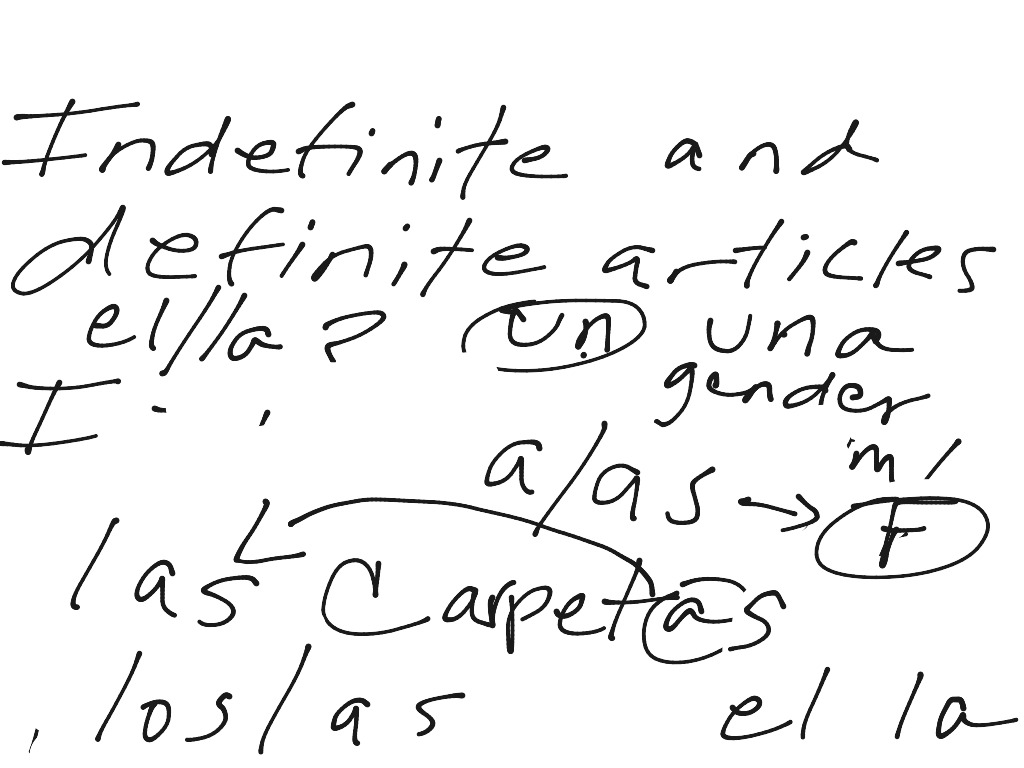 Indefinite and
definite articles
el/la? un una
I gender
a/as → m/
F
las Carpetas
los/as el la